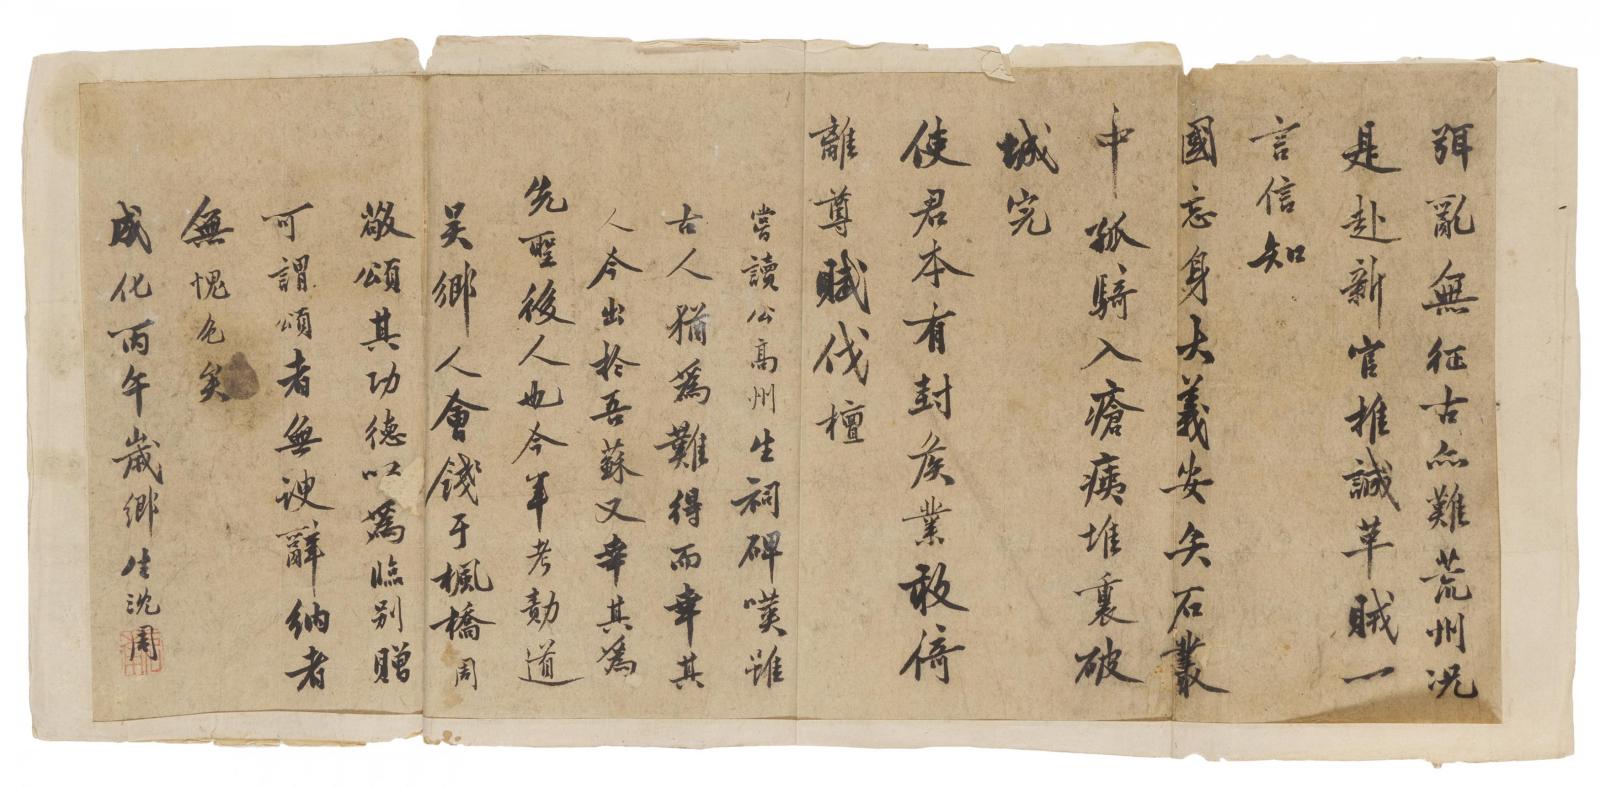 弭亂無征古亦難荒州況
是赴新官推誠革賊一
言信知
國忘身大義安矢石叢
中孤騎入瘡痍堆裏破
城完
使君本有封侯業敢倚
離尊賦伐檀
嘗讀公高州生祠碑嘆雖
古人猶爲難得而幸其
人今出於吾蘇又幸其爲
先聖後人也今年考勣道
吴鄉人會餞于楓橋周
敬頌其功德以爲臨别贈
可謂頌者無諛辭納者
無愧色矣
成化丙午歲鄉生沈周